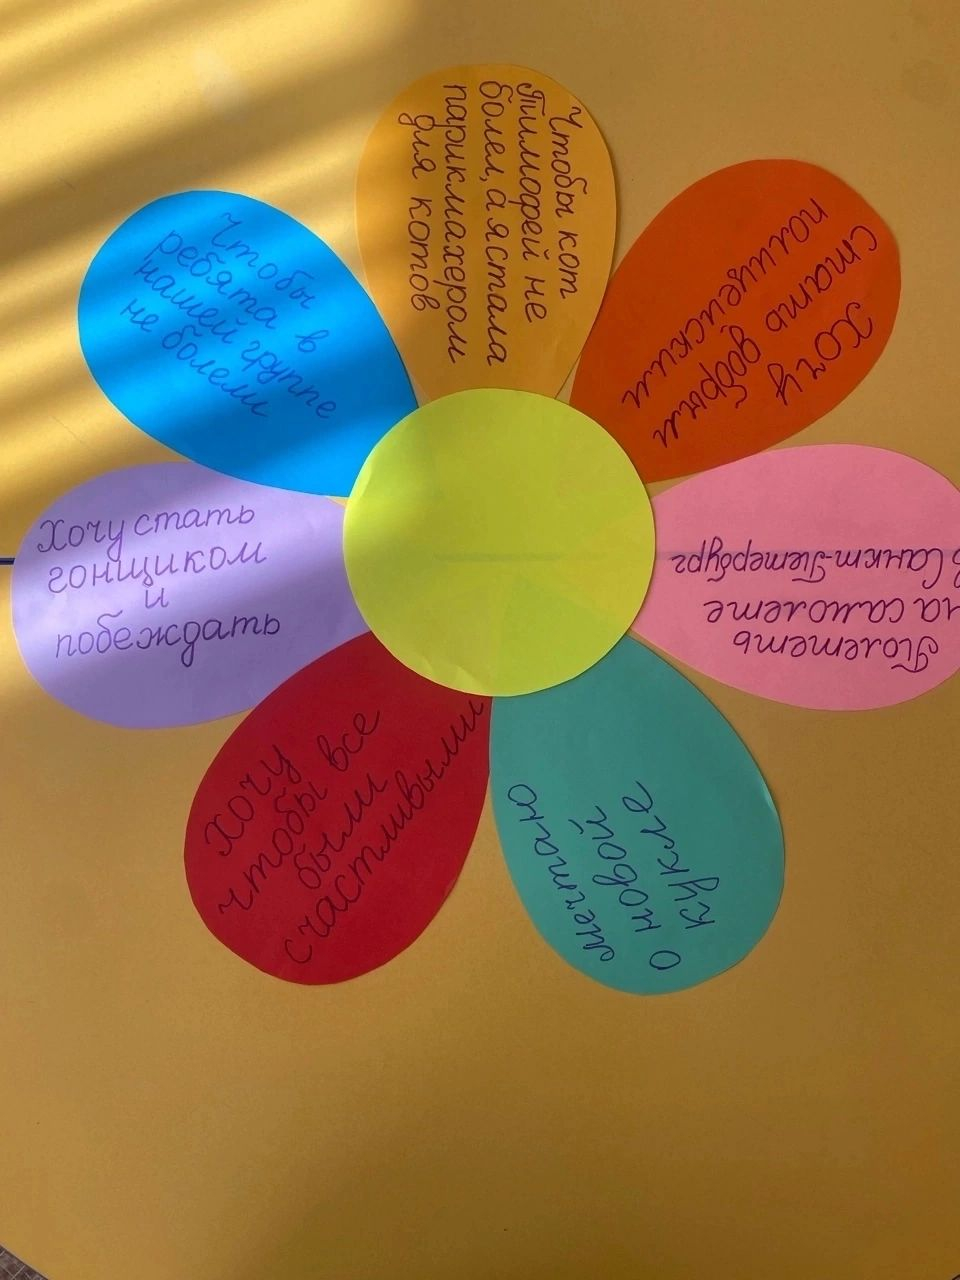 Чтобы кот
Тимофей не
болел, а я стала
парикмахером
для котов
Хочу
стать добрым
полицейским
Полететь
на самолете
в Санкт-Петербург
мечтаю
о новой
кукле
Хочу
чтобы все
были
счастливыми
Хочу стать
гонщиком
и
побеждать
Чтобы
ребята в
нашей группе
не болели